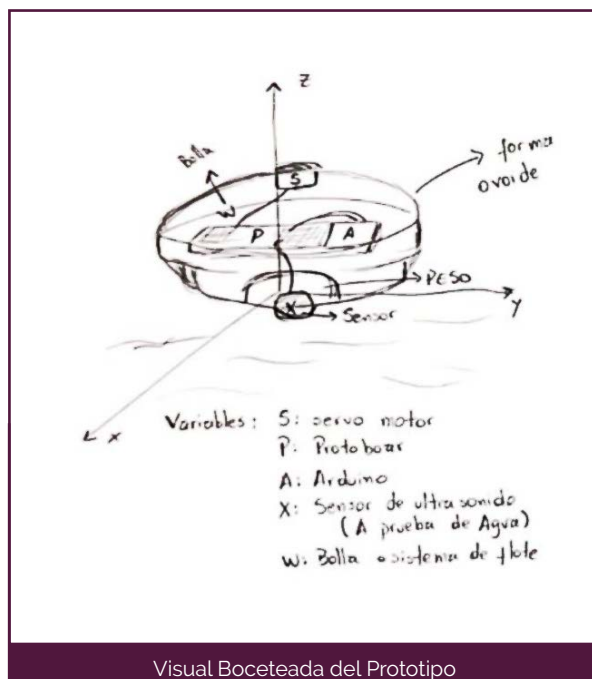 z
forma
ovoide
Bolla
S
W
P
A
PESO
y
X
Sensor
x
Variables: S: servo motor
P: Protoboar
A: Arduino
X: Sensor de ultrasonido
(A prueba de Agua)
W: Bolla o sistema de flote
Visual Boceteada del Prototipo